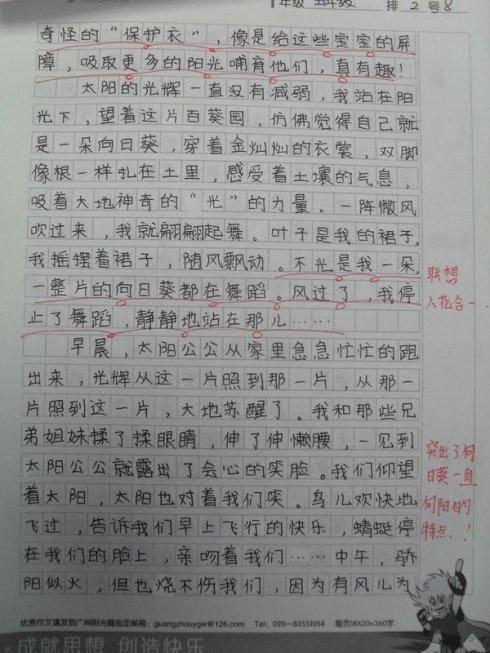 年级 五年级 排 2 号 8
奇怪的“保护衣”,像是给这些宝宝的屏
障,吸取更多的阳光哺育他们,真有趣!
太阳的光辉一直没有减弱,我站在阳
光下,望着这片百葵园,仿佛觉得自己就
是一朵向日葵,穿着金灿灿的衣裳,双脚
像根一样扎在土里,感受着土壤的气息,
吸着大地神奇的“光”的力量。一阵微风
吹过来,我就翩翩起舞。叶子是我的裙子,
我摇摆着裙子,随风飘动。不光是我一朵,
一整片的向日葵都在舞蹈。风过了,我停
止了舞蹈,静静地站在那儿……
联想
人花合一.
早晨,太阳公公从家里急急忙忙的跑
出来,光辉从这一片照到那一片,从那一
片照到这一片,大地苏醒了。我和那些兄
弟姐妹揉了揉眼睛,伸了伸懒腰,一见到
太阳公公就露出了会心的笑脸。我们仰望
着太阳,太阳也对着我们笑。鸟儿欢快地
飞过,告诉我们早上飞行的快乐,蜻蜓停
在我们的脸上,亲吻着我们……中午,骄
阳似火,但也烧不伤我们,因为有风儿为
突出了向
日葵一直
向阳的
特点.!
优秀作文请发到广州阳光喔指定邮箱:guangzhouygw@126.com Tel:020—83551054 每页18X20=360字
成就思想 创造快乐